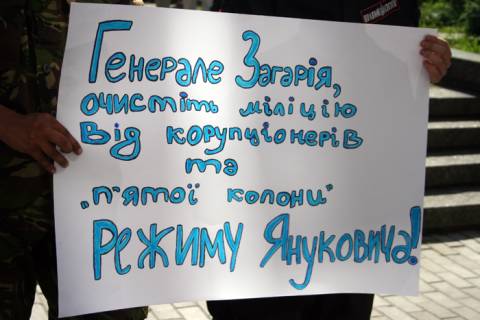 Генерале Загарія,
очистіть міліцію
від корупціонерів
та
„п'ятої колони"
режиму Януковича!